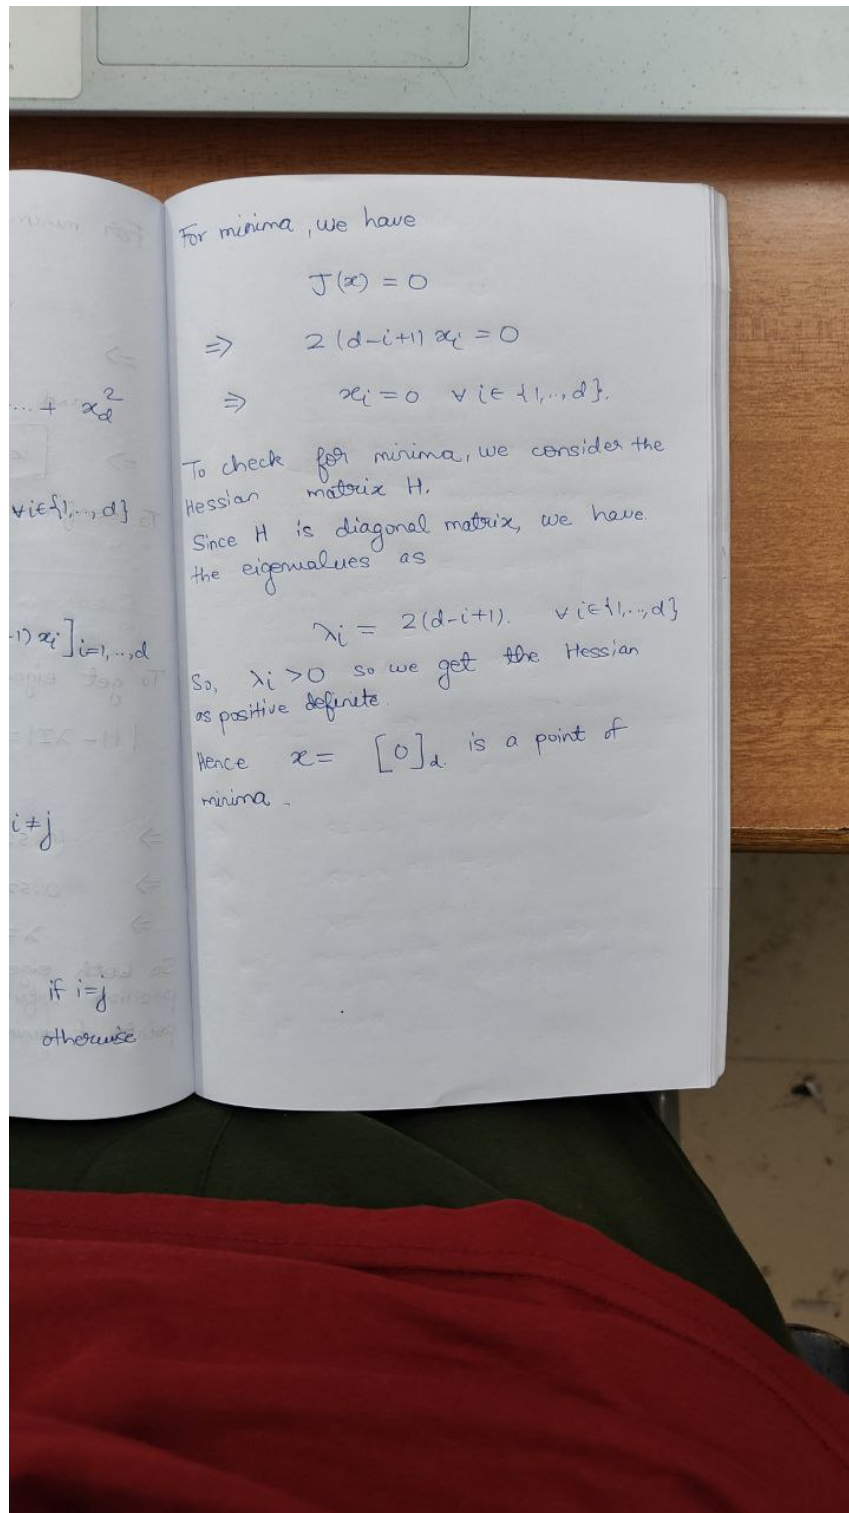 ... + x_d^2
∀ i∈{1,..,d}
-1) x_i ]_{i=1,..,d}
i ≠ j
if i=j
otherwise
For minima, we have
J(x) = 0
⇒ 2(d-i+1) x_i = 0
⇒ x_i = 0 ∀ i ∈ {1,..,d}.
To check for minima, we consider the
Hessian matrix H.
Since H is diagonal matrix, we have
the eigenvalues as
λ_i = 2(d-i+1). ∀ i∈{1,..,d}
So, λ_i > 0 so we get the Hessian
as positive definite.
Hence x = [0]_d is a point of
minima.